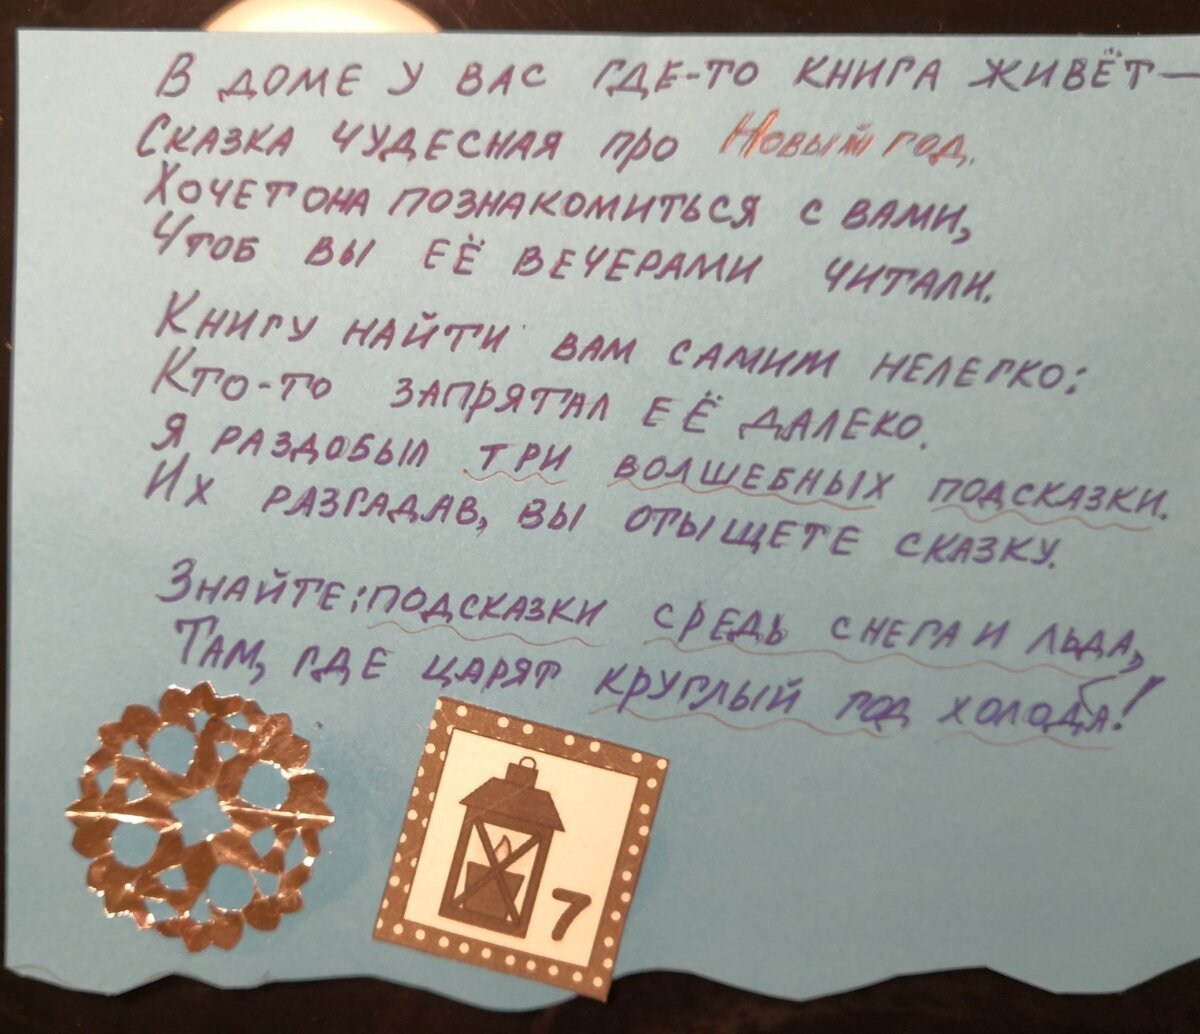 В ДОМЕ У ВАС ГДЕ-ТО КНИГА ЖИВЁТ—
СКАЗКА ЧУДЕСНАЯ ПРО Новый год.
ХОЧЕТ ОНА ПОЗНАКОМИТЬСЯ С ВАМИ,
ЧТОБ ВЫ ЕЁ ВЕЧЕРАМИ ЧИТАЛИ.
КНИГУ НАЙТИ ВАМ САМИМ НЕЛЕГКО:
КТО-ТО ЗАПРЯТАЛ ЕЁ ДАЛЕКО.
Я РАЗДОБЫЛ ТРИ ВОЛШЕБНЫХ ПОДСКАЗКИ.
ИХ РАЗГАДАВ, ВЫ ОТЫЩЕТЕ СКАЗКУ.
ЗНАЙТЕ: ПОДСКАЗКИ СРЕДЬ СНЕГА И ЛЬДА,
ТАМ, ГДЕ ЦАРЯТ КРУГЛЫЙ ГОД ХОЛОДА!
7